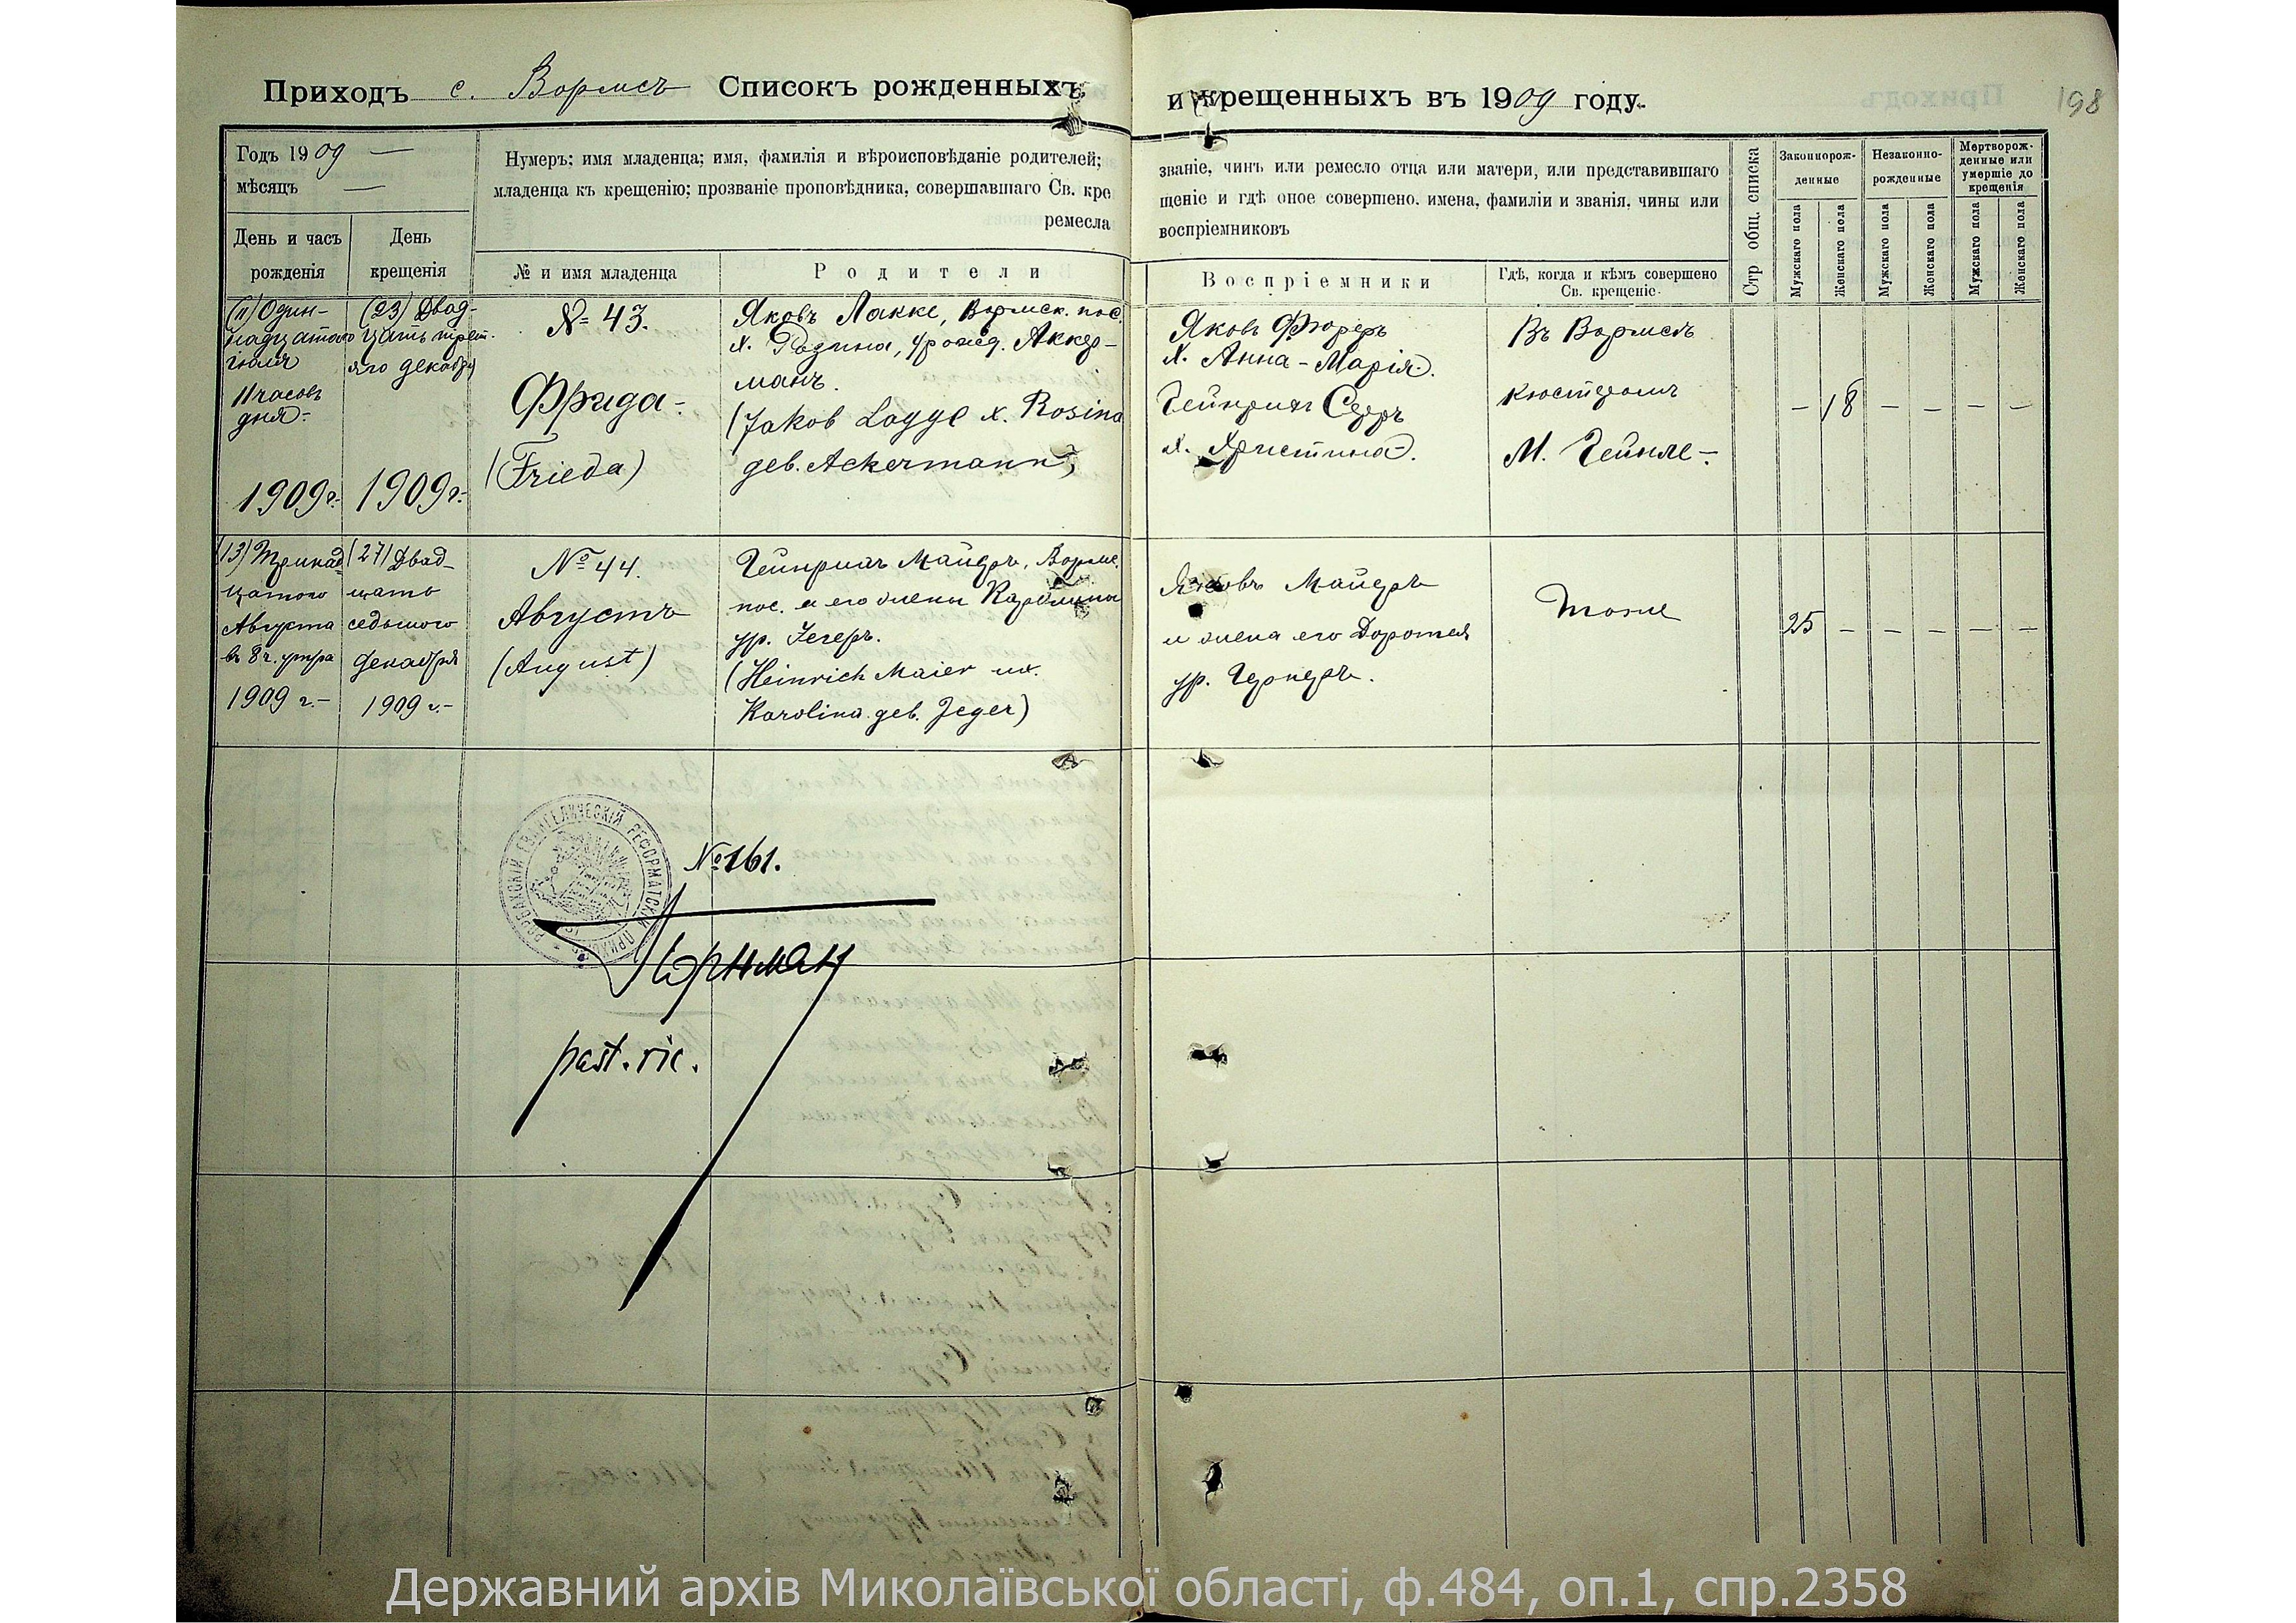 Приходъ с. Вормсъ Списокъ рожденныхъ и крещенныхъ въ 1909 году.
198
Годъ 1909 —
мѣсяцъ —
День и часъ рожденія
День крещенія
Нумеръ; имя младенца; имя, фамилія и вѣроисповѣданіе родителей; званіе, чинъ или ремесло отца или матери, или представившаго
младенца къ крещенію; прозваніе проповѣдника, совершавшаго Св. крещеніе и гдѣ оное совершено. имена, фамиліи и званія, чины или
ремесла воспріемниковъ
№ и имя младенца
Родители
Воспріемники
Гдѣ, когда и кѣмъ совершено
Св. крещеніе.
Стр общ. списка
Законнорожденные
Незаконнорожденные
Мертворожденные или умершіе до крещенія
Мужскаго пола
Женскаго пола
Мужскаго пола
Женскаго пола
Мужскаго пола
Женскаго пола
(11) Один-
надцатого
іюля
11 часовъ
дня.-
1909 г.
(23) Двад-
цать трет.
яго декабря
1909 г.-
№ 43.
Фрида.-
(Frieda)
Яковъ Лакке, Вормск. пос.
х. Розина, урожд. Аккер-
манъ.
(Jakob Lagge x. Rosina
geb. Ackermann)
Яковъ Фюреръ
х. Анна-Марія.
Гейнрихъ Серръ
х. Христина.
Въ Вормсѣ
кюстеромъ
М. Гейнле -
— 18 — — — —
(13) Тринад
цатого
Августа
въ 8 ч. утра
1909 г.-
(27) Двад-
цать
седьмого
декабря
1909 г.-
№ 44.
Августъ
(August)
Гейнрихъ Майеръ, Вормс.
пос. и его жены Каролины
ур. Iегеръ.
(Heinrich Maier ux.
Karolina geb. Jeger)
Яковъ Майеръ
и жена его Доротея
ур. Гернеръ.
Тоже
25 — — — — —
РОРБАХСКІЙ ЕВАНГЕЛИЧЕСКІЙ РЕФОРМАТСКІЙ ПРИХОДЪ
№ 161.
past. vic.
Державний архів Миколаївської області, ф.484, оп.1, спр.2358